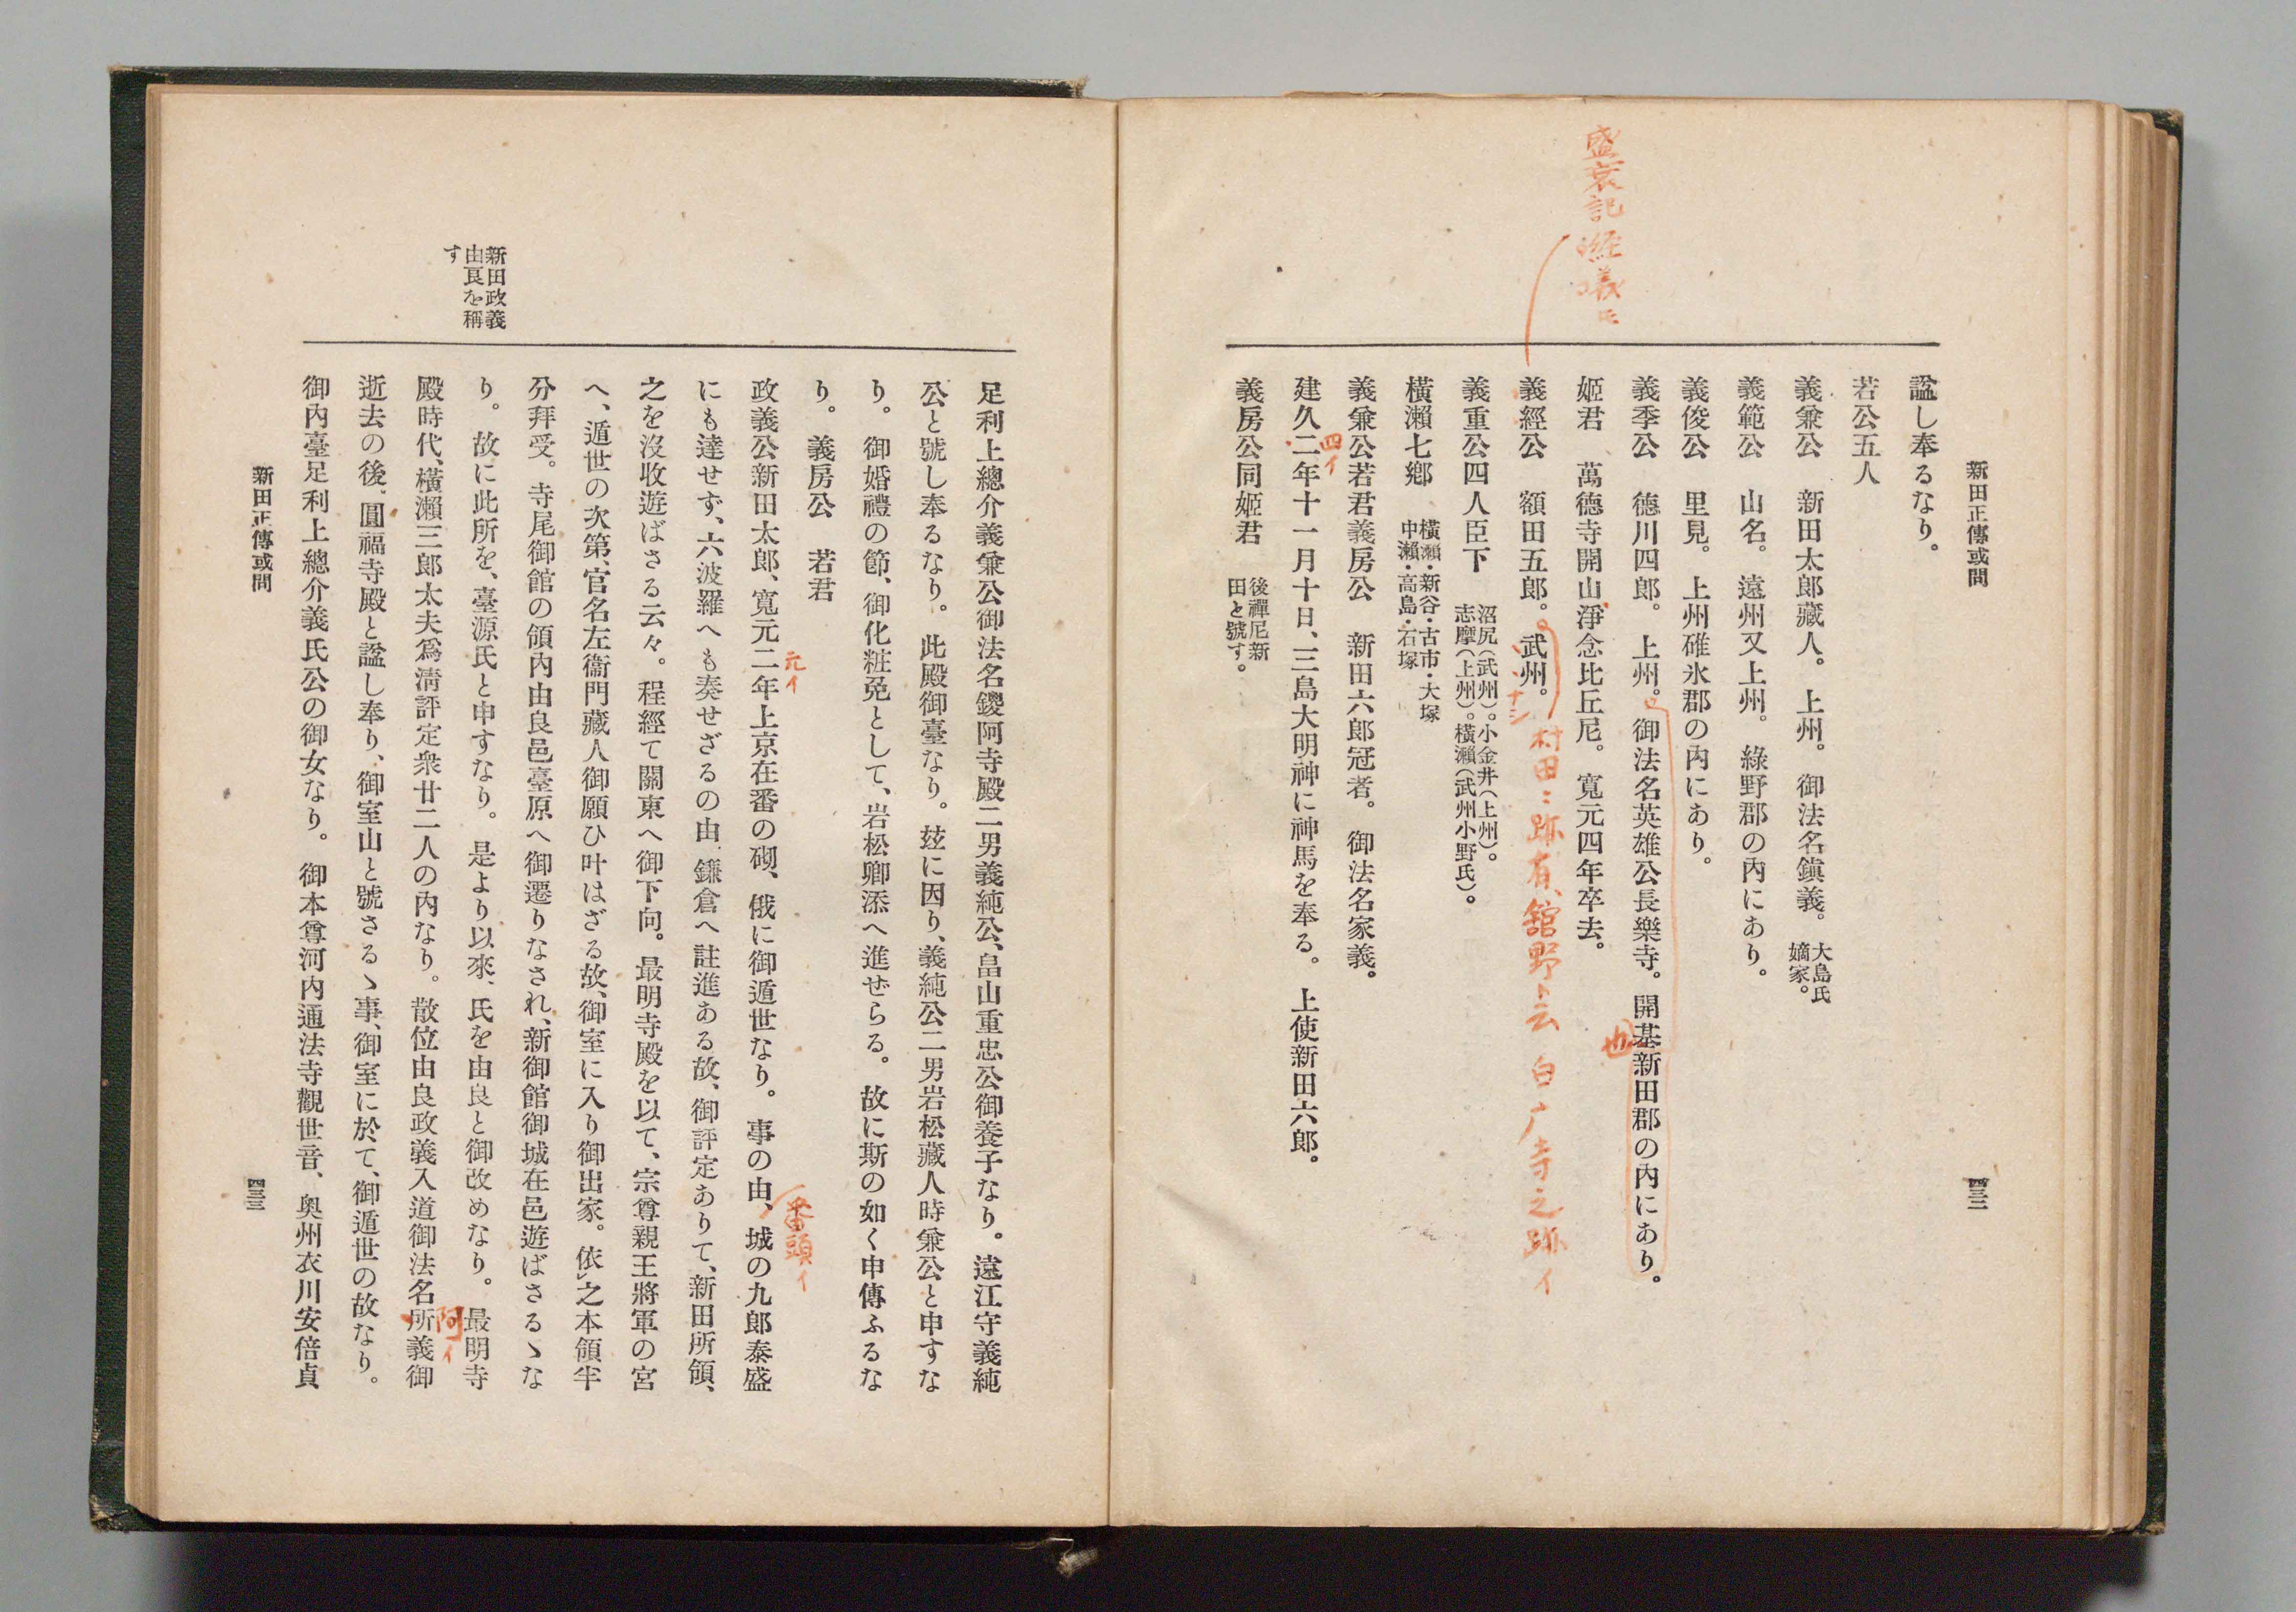 新田正傳或問
四三二
盛衰記 經義ニ
諡し奉るなり。
若公五人
義兼公　新田太郎藏人。上州。御法名鎭義。大島氏嫡家。
義範公　山名。遠州又上州。綠野郡の內にあり。
義俊公　里見。上州碓氷郡の內にあり。
義季公　德川四郎。上州。御法名英雄公長樂寺。開基新田郡の內にあり。
也
姬君　萬德寺開山淨念比丘尼。寬元四年卒去。
義經公　額田五郎。武州。
村田ニ跡有、舘野ト云 白广寺之跡イ
義重公四人臣下　沼尻（武州）。小金井（上州）。志摩（上州）。橫瀨（武州小野氏）。
橫瀨七鄕　橫瀨・新谷・古市・大塚中瀨・高島・石塚
義兼公若君義房公　新田六郎冠者。御法名家義。
四イ
建久二年十一月十日、三島大明神に神馬を奉る。上使新田六郎。
義房公同姬君　後禪尼新田と號す。
新田政義由良を稱す
足利上總介義兼公御法名鑁阿寺殿二男義純公、畠山重忠公御養子なり。遠江守義純
公と號し奉るなり。此殿御臺なり。玆に因り、義純公二男岩松藏人時兼公と申すな
り。御婚禮の節、御化粧免として、岩松鄕添へ進ぜらる。故に斯の如く申傳ふるな
り。義房公　若君
元イ
番頭イ
政義公新田太郎、寬元二年上京在番の砌、俄に御遁世なり。事の由、城の九郎泰盛
にも達せず、六波羅へも奏せざるの由、鎌倉へ註進ある故、御評定ありて、新田所領、
之を沒收遊ばさる云々。程經て關東へ御下向。最明寺殿を以て、宗尊親王將軍の宮
へ、遁世の次第、官名左衞門藏人御願ひ叶はざる故、御室に入り御出家。依㆑之本領半
分拜受。寺尾御館の領內由良邑臺原へ御遷りなされ、新御館御城在邑遊ばさるゝな
り。故に此所を、臺源氏と申すなり。是より以來、氏を由良と御改めなり。最明寺
阿イ
殿時代、橫瀨三郎太夫爲淸評定衆廿二人の內なり。散位由良政義入道御法名所義御
逝去の後、圓福寺殿と諡し奉り、御室山と號さるゝ事、御室に於て、御遁世の故なり。
御內臺足利上總介義氏公の御女なり。御本尊河內通法寺觀世音、奧州衣川安倍貞
新田正傳或問
四三三